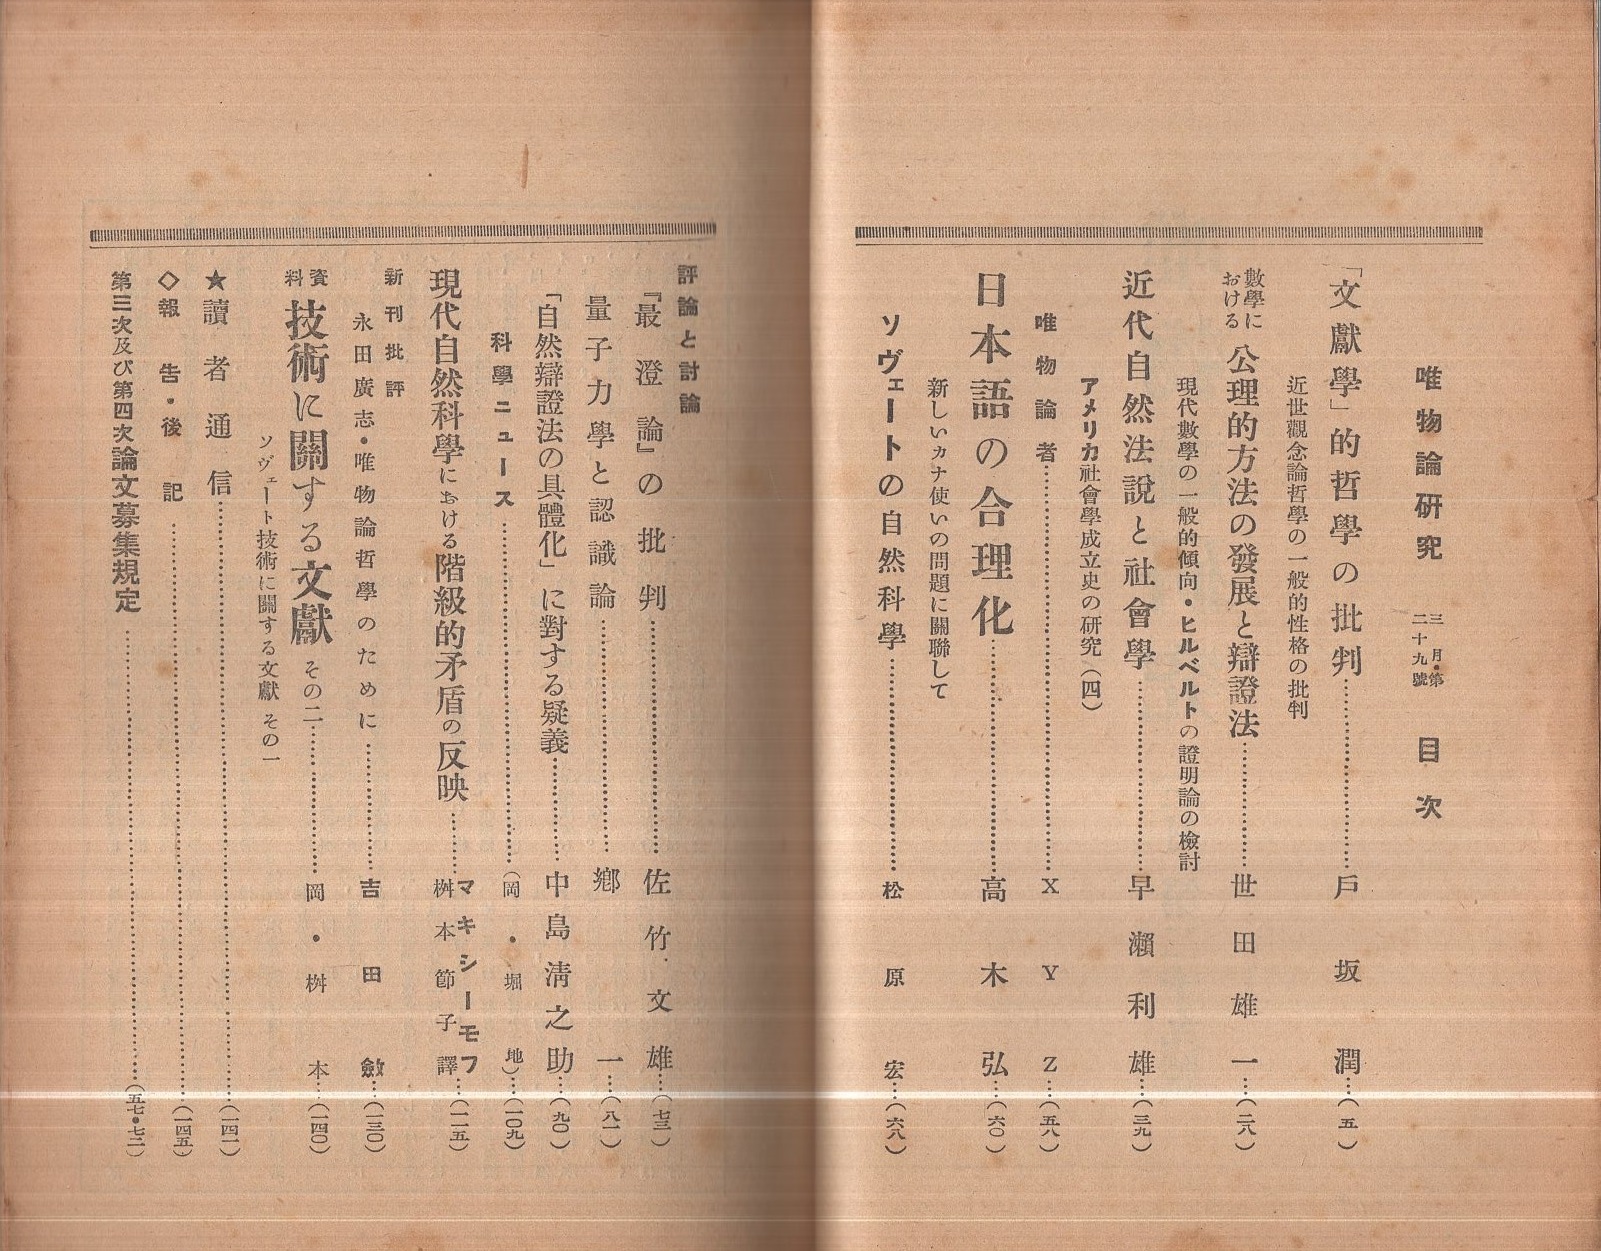 唯物論研究 三月・第二十九號 目次
「文獻學」的哲學の批判……戶坂潤…(五)
近世觀念論哲學の一般的性格の批判
數學における 公理的方法の發展と辯證法……世田雄一…(二八)
現代數學の一般的傾向・ヒルベルトの證明論の檢討
近代自然法說と社會學……早瀨利雄…(三九)
アメリカ社會學成立史の研究(四)
唯物論者……X Y Z…(五八)
日本語の合理化……高木弘…(六〇)
新しいカナ使いの問題に關聯して
ソヴェートの自然科學……松原宏…(六八)
評論と討論
『最澄論』の批判……佐竹文雄…(七三)
量子力學と認識論……鄕一…(八一)
「自然辯證法の具體化」に對する疑義……中島淸之助…(九〇)
科學ニュース……(岡・堀地)…(一〇九)
現代自然科學における階級的矛盾の反映……マキシーモフ 桝本節子譯…(一一五)
新刊批評
永田廣志・唯物論哲學のために……吉田斂…(一三〇)
資料 技術に關する文獻 その二……岡・桝本…(一四〇)
ソヴェート技術に關する文獻 その一
★讀者通信……(一四一)
◇報告・後記……(一四五)
第三次及び第四次論文募集規定……(五七・七二)